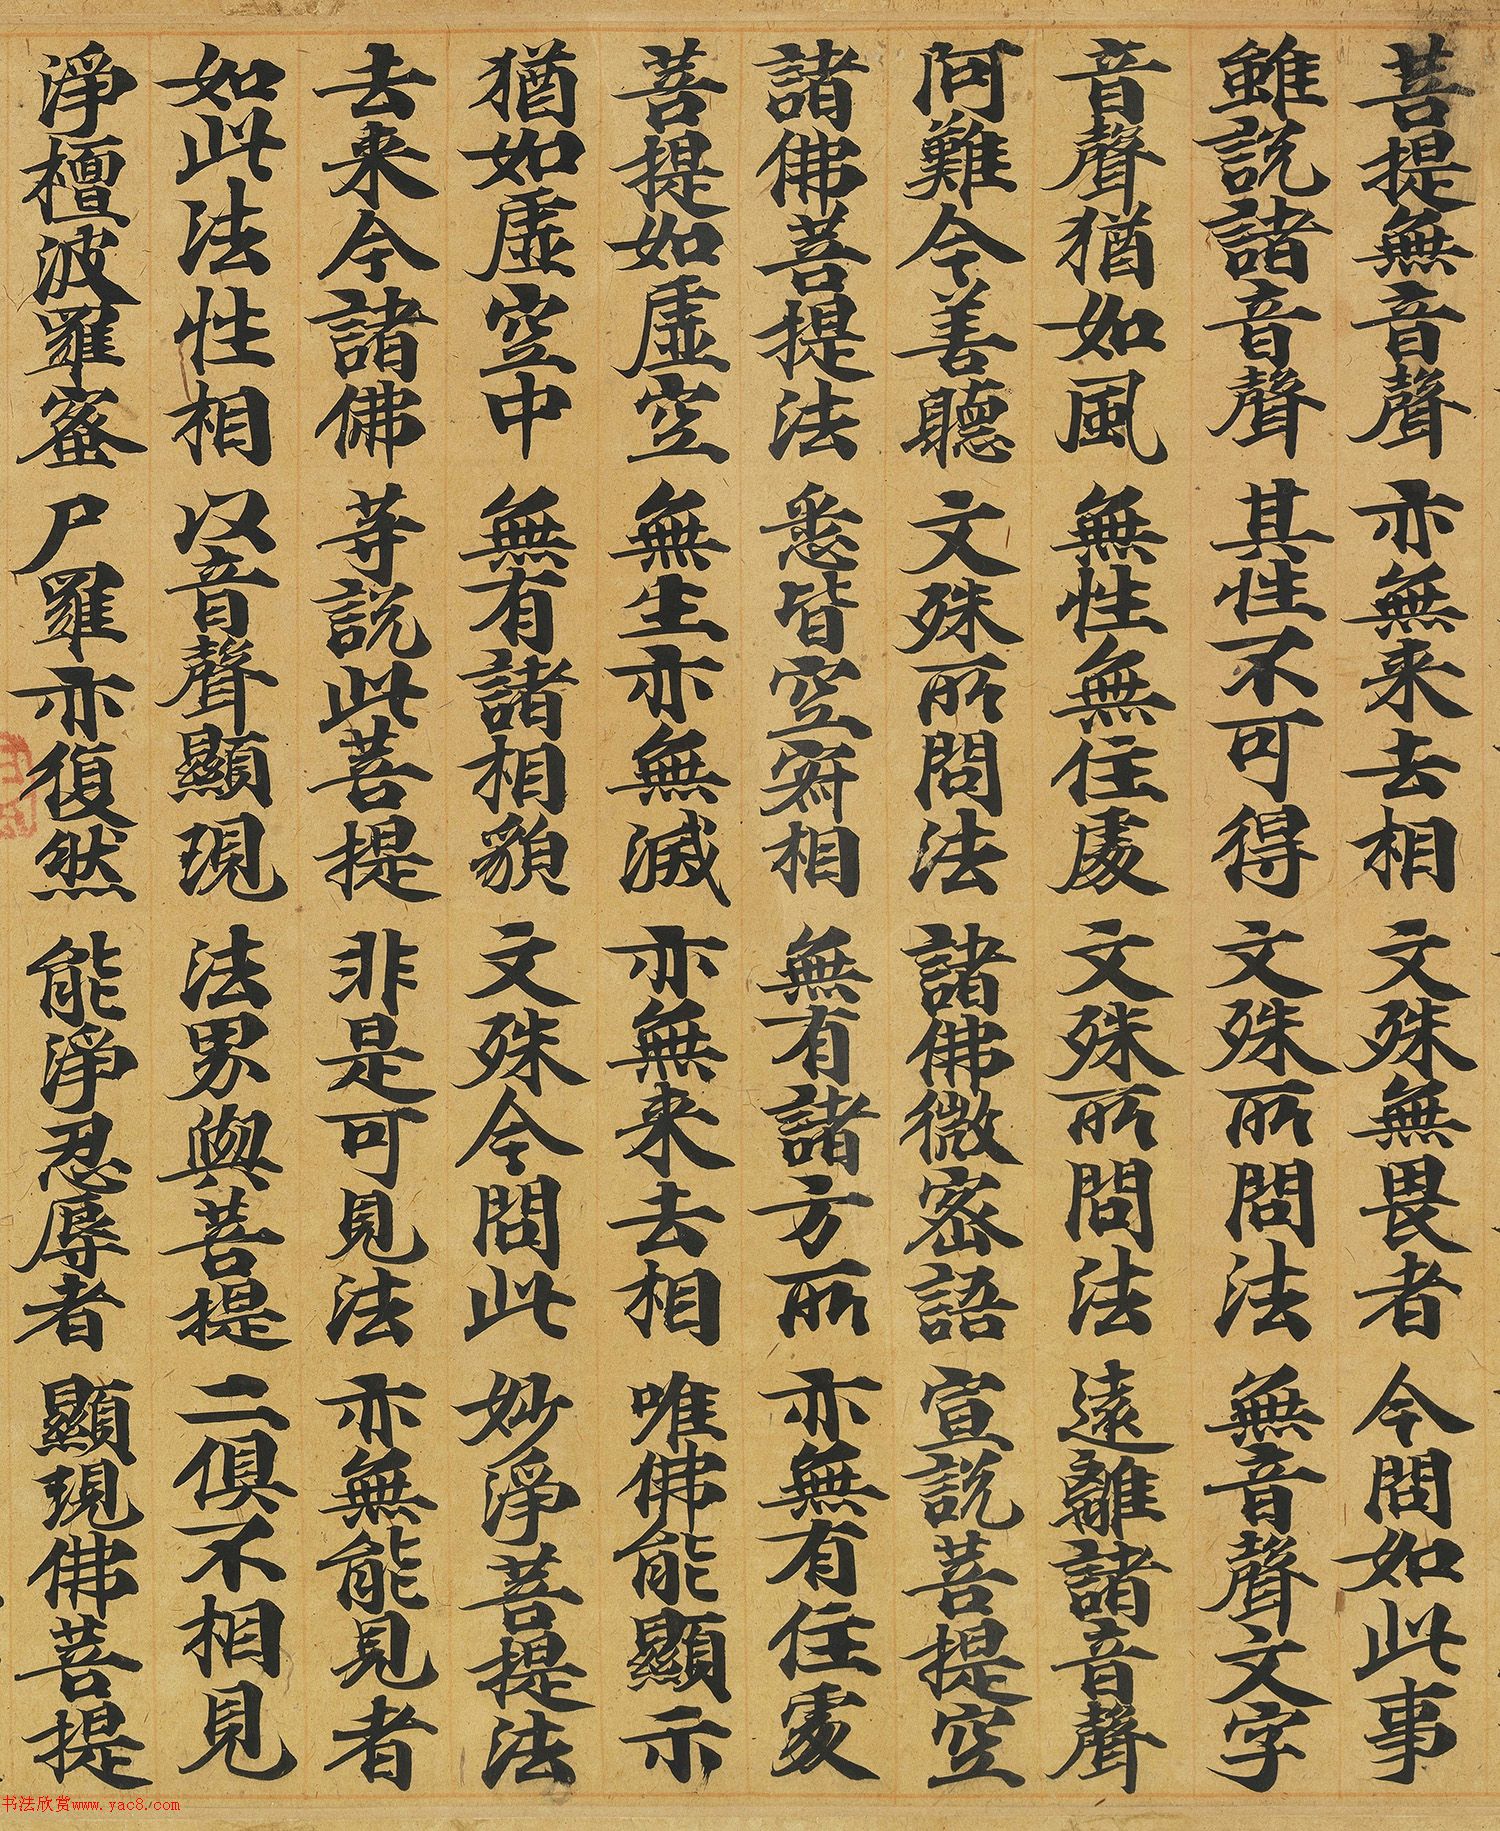 菩提無音聲 亦無来去相 文殊無畏者 今問如此事
雖說諸音聲 其性不可得 文殊所問法 無音聲文字
音聲猶如風 無性無住處 文殊所問法 遠離諸音聲
阿難今善聽 文殊所問法 諸佛微密語 宣說菩提空
諸佛菩提法 悉皆空寂相 無有諸方所 亦無有住處
菩提如虛空 無生亦無滅 亦無来去相 唯佛能顯示
猶如虛空中 無有諸相貌 文殊今問此 妙淨菩提法
去来今諸佛 等說此菩提 非是可見法 亦無能見者
如此法性相 以音聲顯現 法界與菩提 二俱不相見
淨檀波羅蜜 尸羅亦復然 能淨忍辱者 顯現佛菩提
书法欣赏www.yac8.com